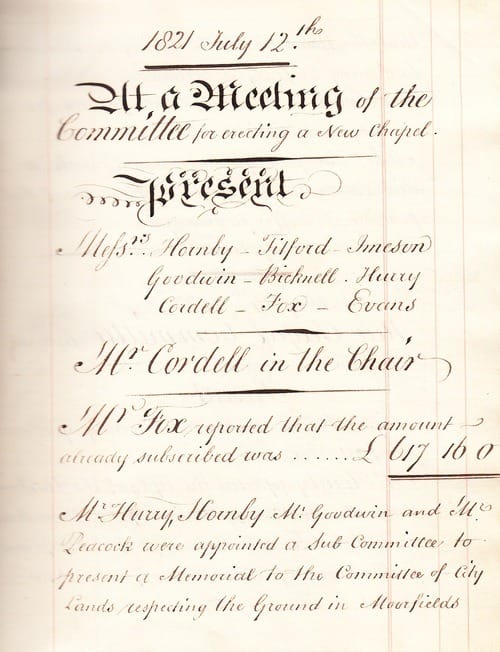 1821 July 12.th
At a Meeting of the
Committee for erecting a New Chapel.
Present
Messrs. Hornby - Titford - Jmeson
Goodwin - Bicknell. Hurry
Cordell - Fox - Evans
Mr. Cordell in the Chair
Mr Fox reported that the amount
already subscribed was ...... £ 617 16 0
Mr. Hurry, Hornby Mr. Goodwin and Mr.
Peacock were appointed a Sub Committee to
present a Memorial to the Committee of City
Lands respecting the Ground in Moorfields